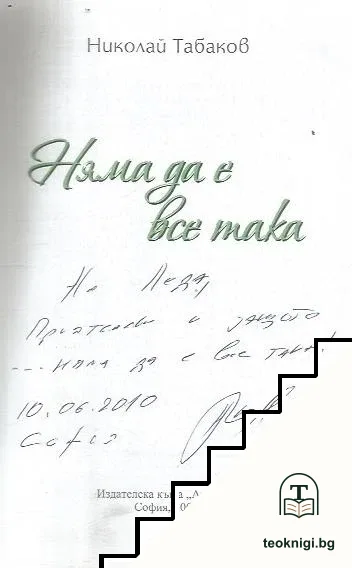 Николай Табаков
Няма да е
все така
На Леда,
Приятелски и защото
... няма да е все така!
10.06.2010
София
Издателска къ
София,
T
teoknigi.bg